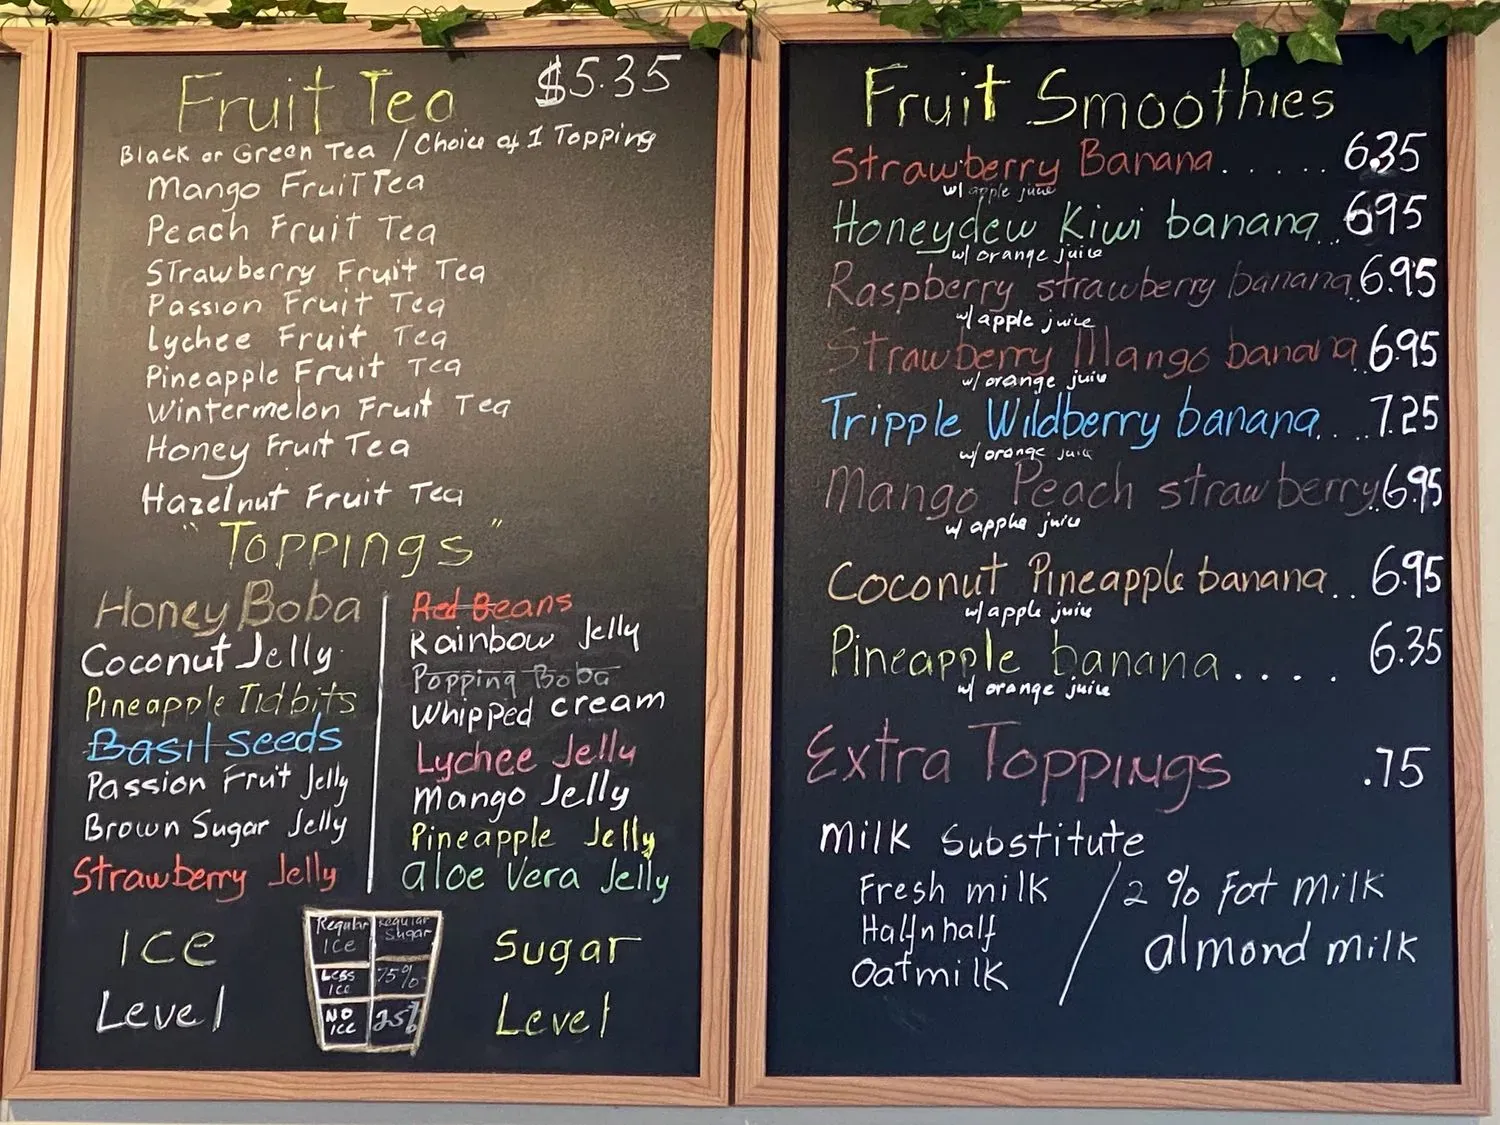 Fruit Tea $5.35
Black or Green Tea / Choice of 1 Topping
Mango Fruit Tea
Peach Fruit Tea
Strawberry Fruit Tea
Passion Fruit Tea
Lychee Fruit Tea
Pineapple Fruit Tea
Wintermelon Fruit Tea
Honey Fruit Tea
Hazelnut Fruit Tea
"Toppings"
Honey Boba
Coconut Jelly
Pineapple Tidbits
Basil seeds
Passion Fruit Jelly
Brown Sugar Jelly
Strawberry Jelly
Red Beans
Rainbow Jelly
Popping Boba
Whipped cream
Lychee Jelly
Mango Jelly
Pineapple Jelly
Aloe Vera Jelly
Ice
Level
Regular Ice
Regular Sugar
Less Ice
75%
No Ice
25%
Sugar
Level
Fruit Smoothies
Strawberry Banana..... 6.35
w/ apple juice
Honeydew Kiwi banana.. 695
w/ orange juice
Raspberry strawberry banana.. 6.95
w/ apple juice
Strawberry Mango banana.. 695
w/ orange juice
Tripple Wildberry banana.... 7.25
w/ orange juice
Mango Peach strawberry.. 6.95
w/ apple juice
Coconut Pineapple banana.. 6.95
w/ apple juice
Pineapple banana.... 6.35
w/ orange juice
Extra Toppings .75
Milk Substitute
Fresh milk / 2% Fat milk
Half n half
Oatmilk
almond milk